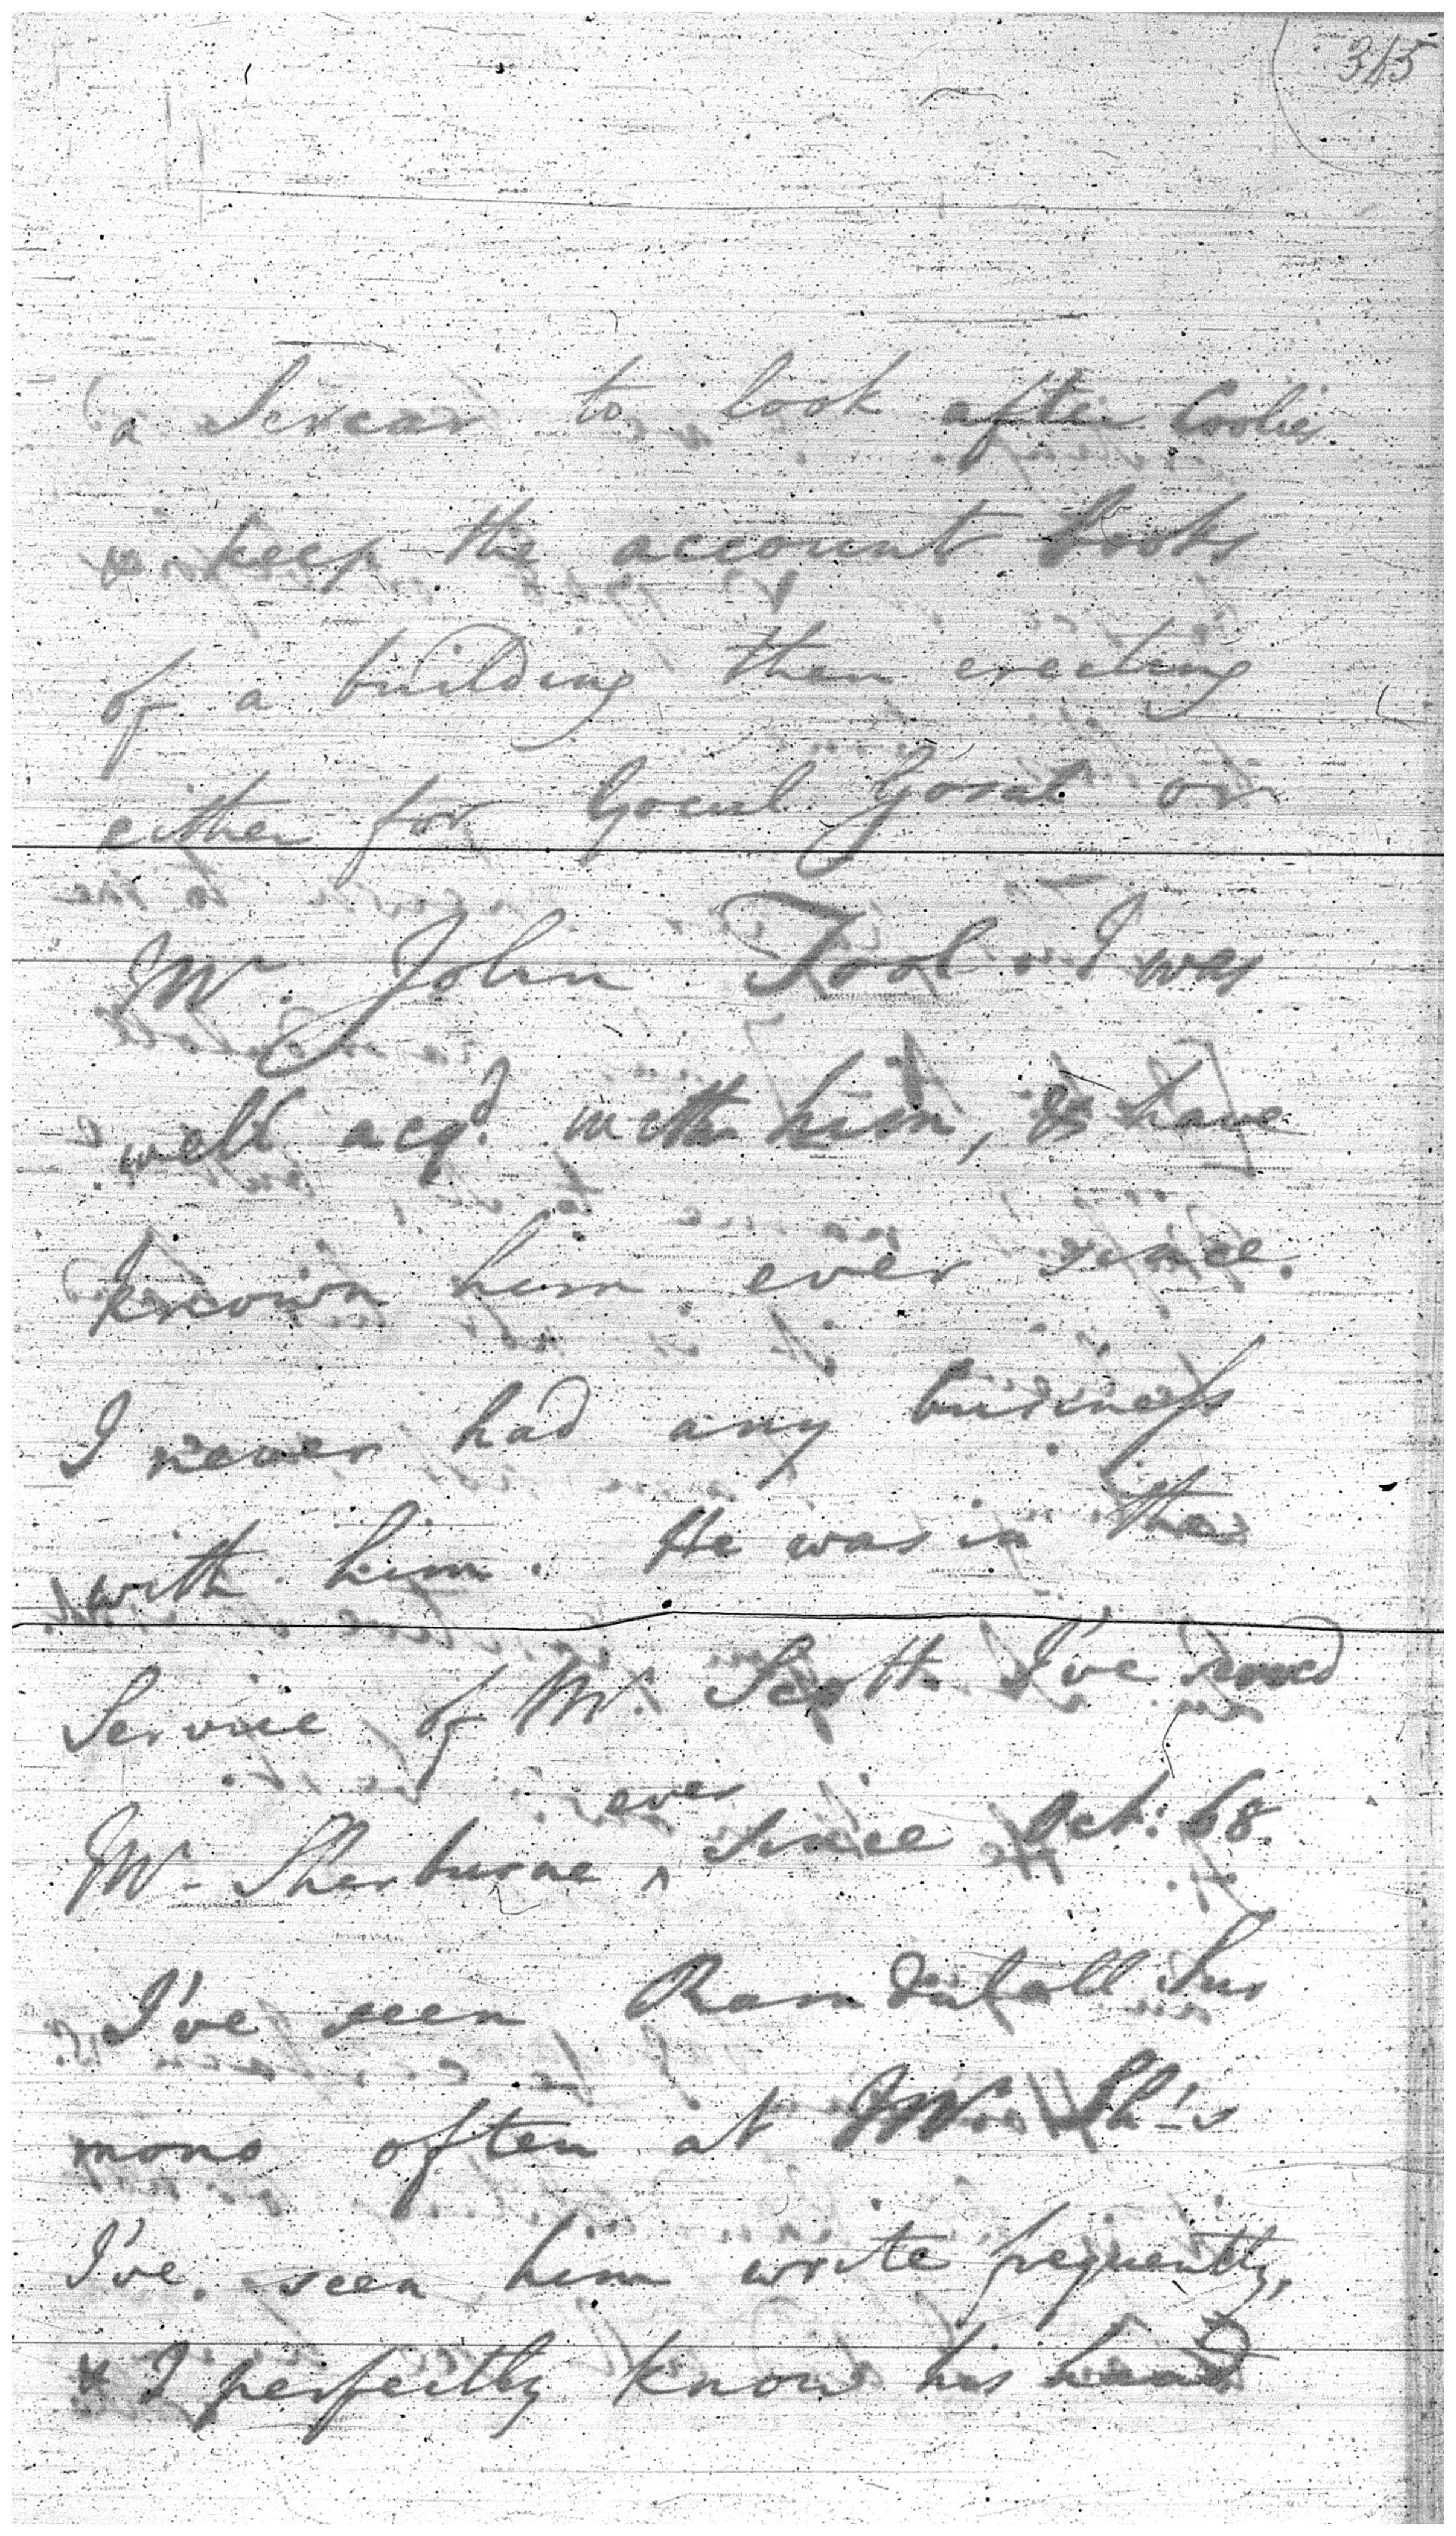 315
a Sercar to look after Coolies
& keep the account books
of a building then erecting
either for Gocul Gosal or
Mr. John Fool. I was
well acqd. with him, & have
known him ever since.
I never had any business
with him. He was in the
Service of Mr. Scott. I've served
Mr. Sherburne ^ever since Oct: 68.
I've seen Ram
mono often at Mr. Sh-'s
I've seen him write frequently,
& I perfectly know his hand